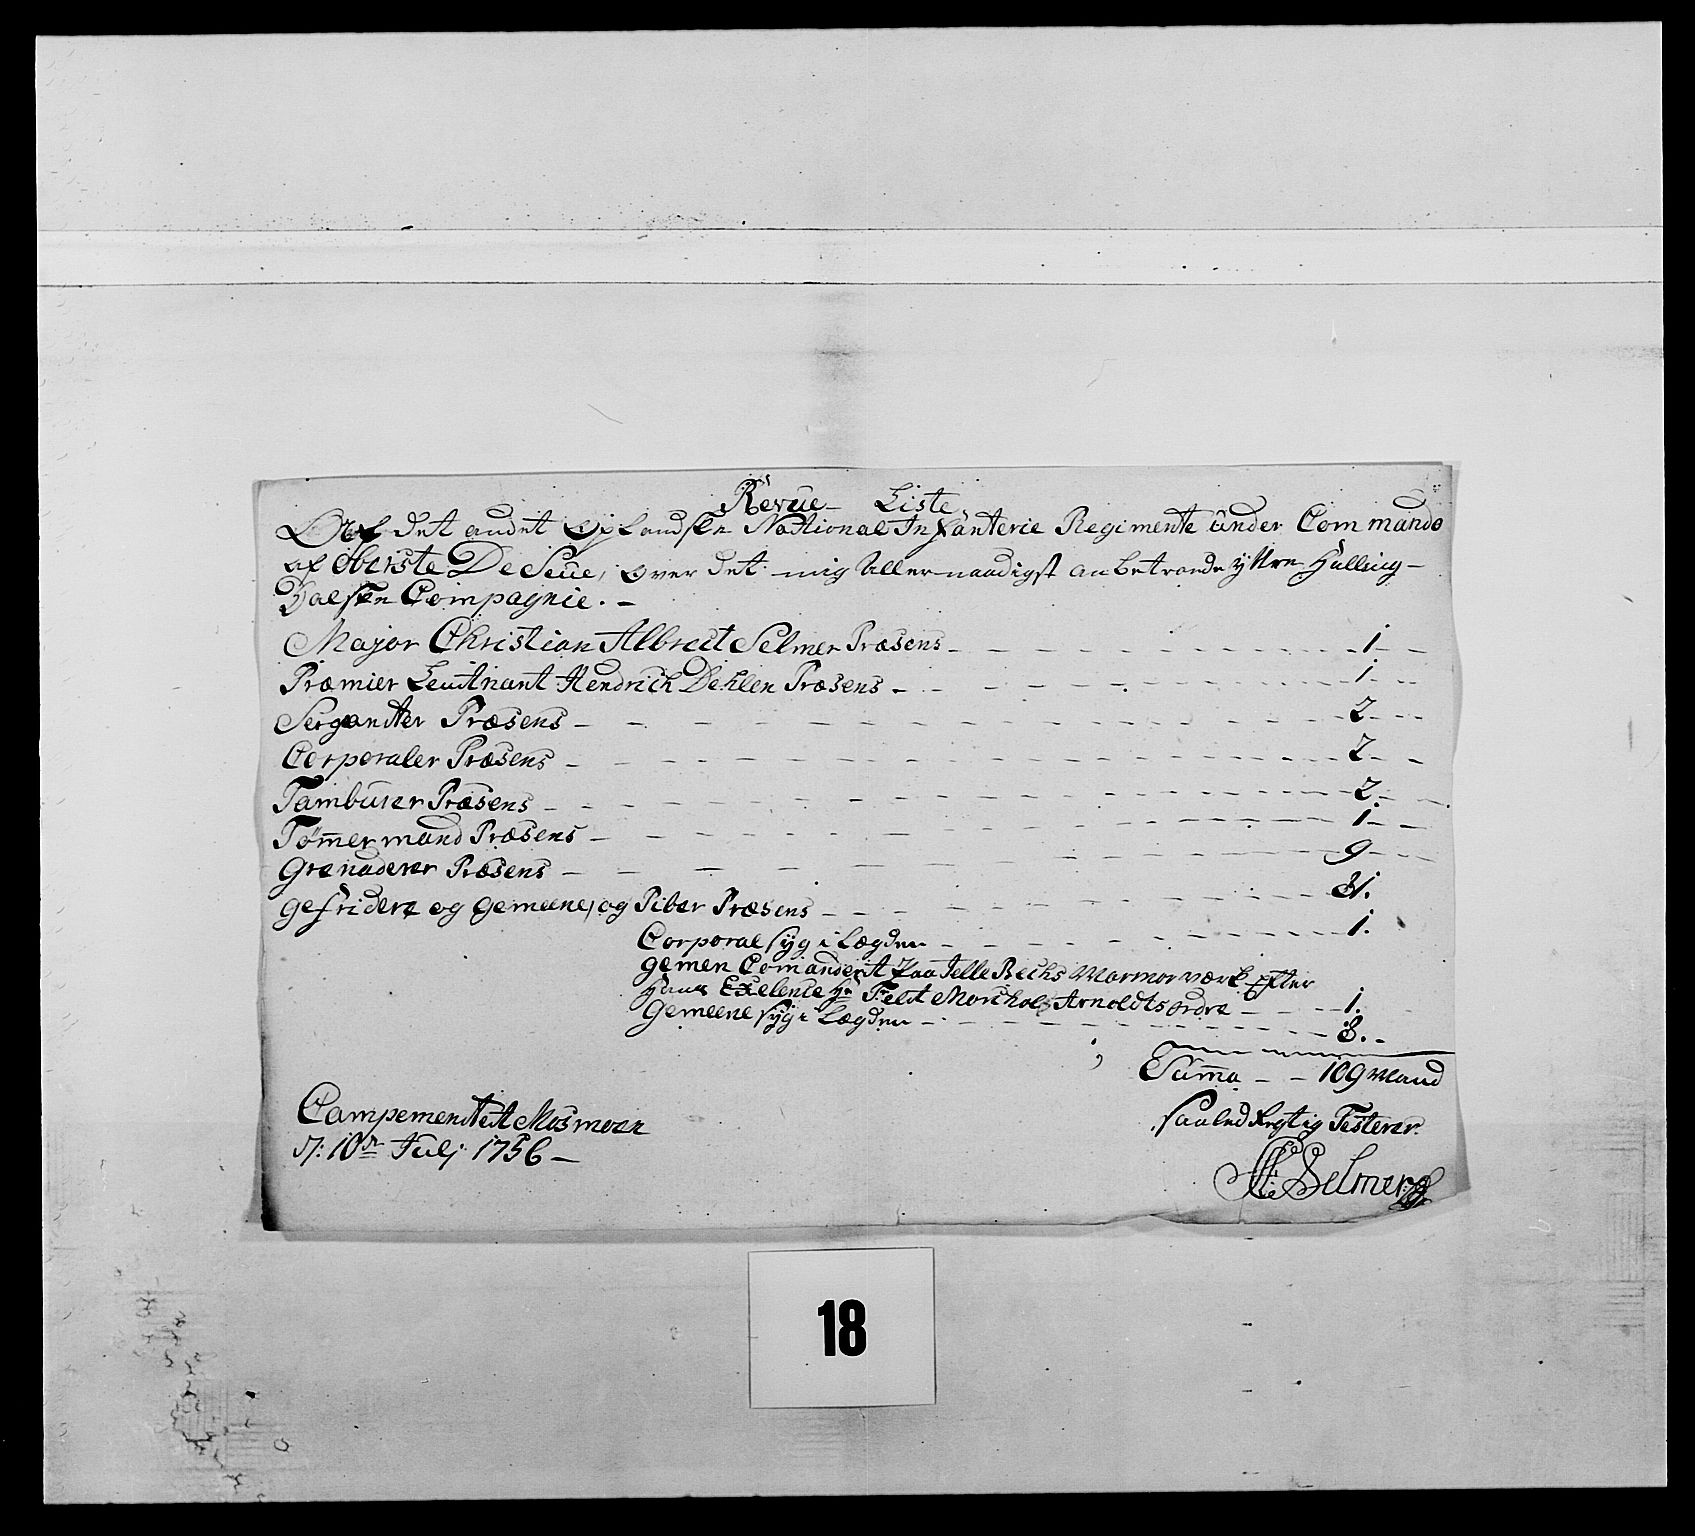 Revue Liste
Af det andet Oplandske National Infanterie Regimente under Commando
af Oberste De Seüe, over det mig Allernaadigst anbetroede yttre Halling-
Dalske Compagnie. -
Major Christian Albrect Selmer Præsens - 1
Præmier Leutnant Hendrich Dehlen Præsens - 1
Sergeandter Præsens - 2
Corporaler Præsens - 2
Tambuser Præsens - 2
Tømmermand Præsens - 1
Granaderer Præsens - 9
Gefridere og Gemeene, og Piber Præsens - 81.
Corporal syg i Lægden - 1.
Gemen Comandert paa Gille Bechs Marmorværk efter
Hans Exelence Hr Feldt Marchals Arnoldts ordre - 1.
Gemeene syg i Lægden - 8. -
Summa - - 109 Mand
Campementet Mosmoen
d: 10de Julj 1756 -
saaled Rigtig Testerer.
CA Selmer
18